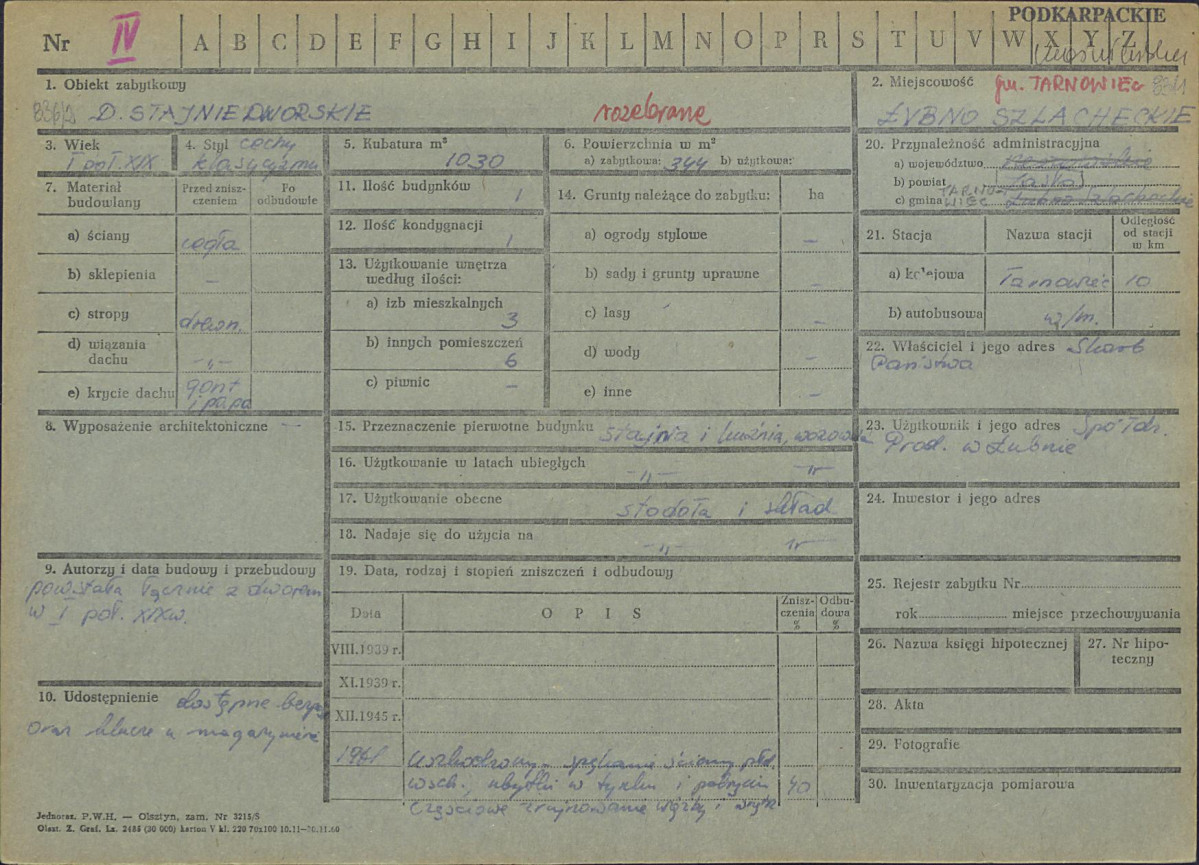 PODKARPACKIE
Nr IV A B C D E F G H I J K L M N O P R S T U V W X Y Z
1. Obiekt zabytkowy
D. STAJNIE DWORSKIE
rozebrane
2. Miejscowość gm. TARNOWIEC
ŁUBNO SZLACHECKIE
3. Wiek
I poł. XIX
4. Styl cechy
klasycyzmu
5. Kubatura m³
1030
6. Powierzchnia w m²
a) zabytkowa: 344 b) użytkowa:
7. Materiał budowlany
Przed zniszczeniem
Po odbudowie
a) ściany cegła
b) sklepienia –
c) stropy drewn.
d) wiązania dachu -„-
e) krycie dachu gont i papa
8. Wyposażenie architektoniczne --
9. Autorzy i data budowy i przebudowy
powstała łącznie z dworem
w I poł. XIXw.
10. Udostępnienie dostępne
oraz klucze u magazyniera
11. Ilość budynków 1
12. Ilość kondygnacji 1
13. Użytkowanie wnętrza
według ilości:
a) izb mieszkalnych 3
b) innych pomieszczeń 6
c) piwnic –
14. Grunty należące do zabytku: ha
a) ogrody stylowe –
b) sady i grunty uprawne –
c) lasy –
d) wody –
e) inne –
15. Przeznaczenie pierwotne budynku stajnia i kuźnia, wozownia
16. Użytkowanie w latach ubiegłych -„- -„-
17. Użytkowanie obecne stodoła i skład
18. Nadaje się do użycia na -„- -„-
19. Data, rodzaj i stopień zniszczeń i odbudowy
Data
O P I S
Zniszczenia %
Odbudowa %
VIII.1939 r.
XI.1939 r.
XII.1945 r.
1961 spękanie ściany płd.
wsch., ubytki w tynku i pokryciu 40
częściowe zrujnowanie więźby i
20. Przynależność administracyjna
a) województwo
b) powiat Jasło
c) gmina TARNOWIEC Łubno Szlacheckie
21. Stacja
Nazwa stacji
Odległość od stacji w km
a) kolejowa Tarnowiec 10
b) autobusowa w/m.
22. Właściciel i jego adres Skarb
Państwa
23. Użytkownik i jego adres Spółdz.
Prod. w Łubnie
24. Inwestor i jego adres
25. Rejestr zabytku Nr
rok miejsce przechowywania
26. Nazwa księgi hipotecznej
27. Nr hipoteczny
28. Akta
29. Fotografie
30. Inwentaryzacja pomiarowa
Jednoraz. P.W.H. — Olsztyn, zam. Nr 3215/S
Olszt. Z. Graf. Lz. 2485 (30 000) karton V kl. 220 70x100 10.11—20.11.60